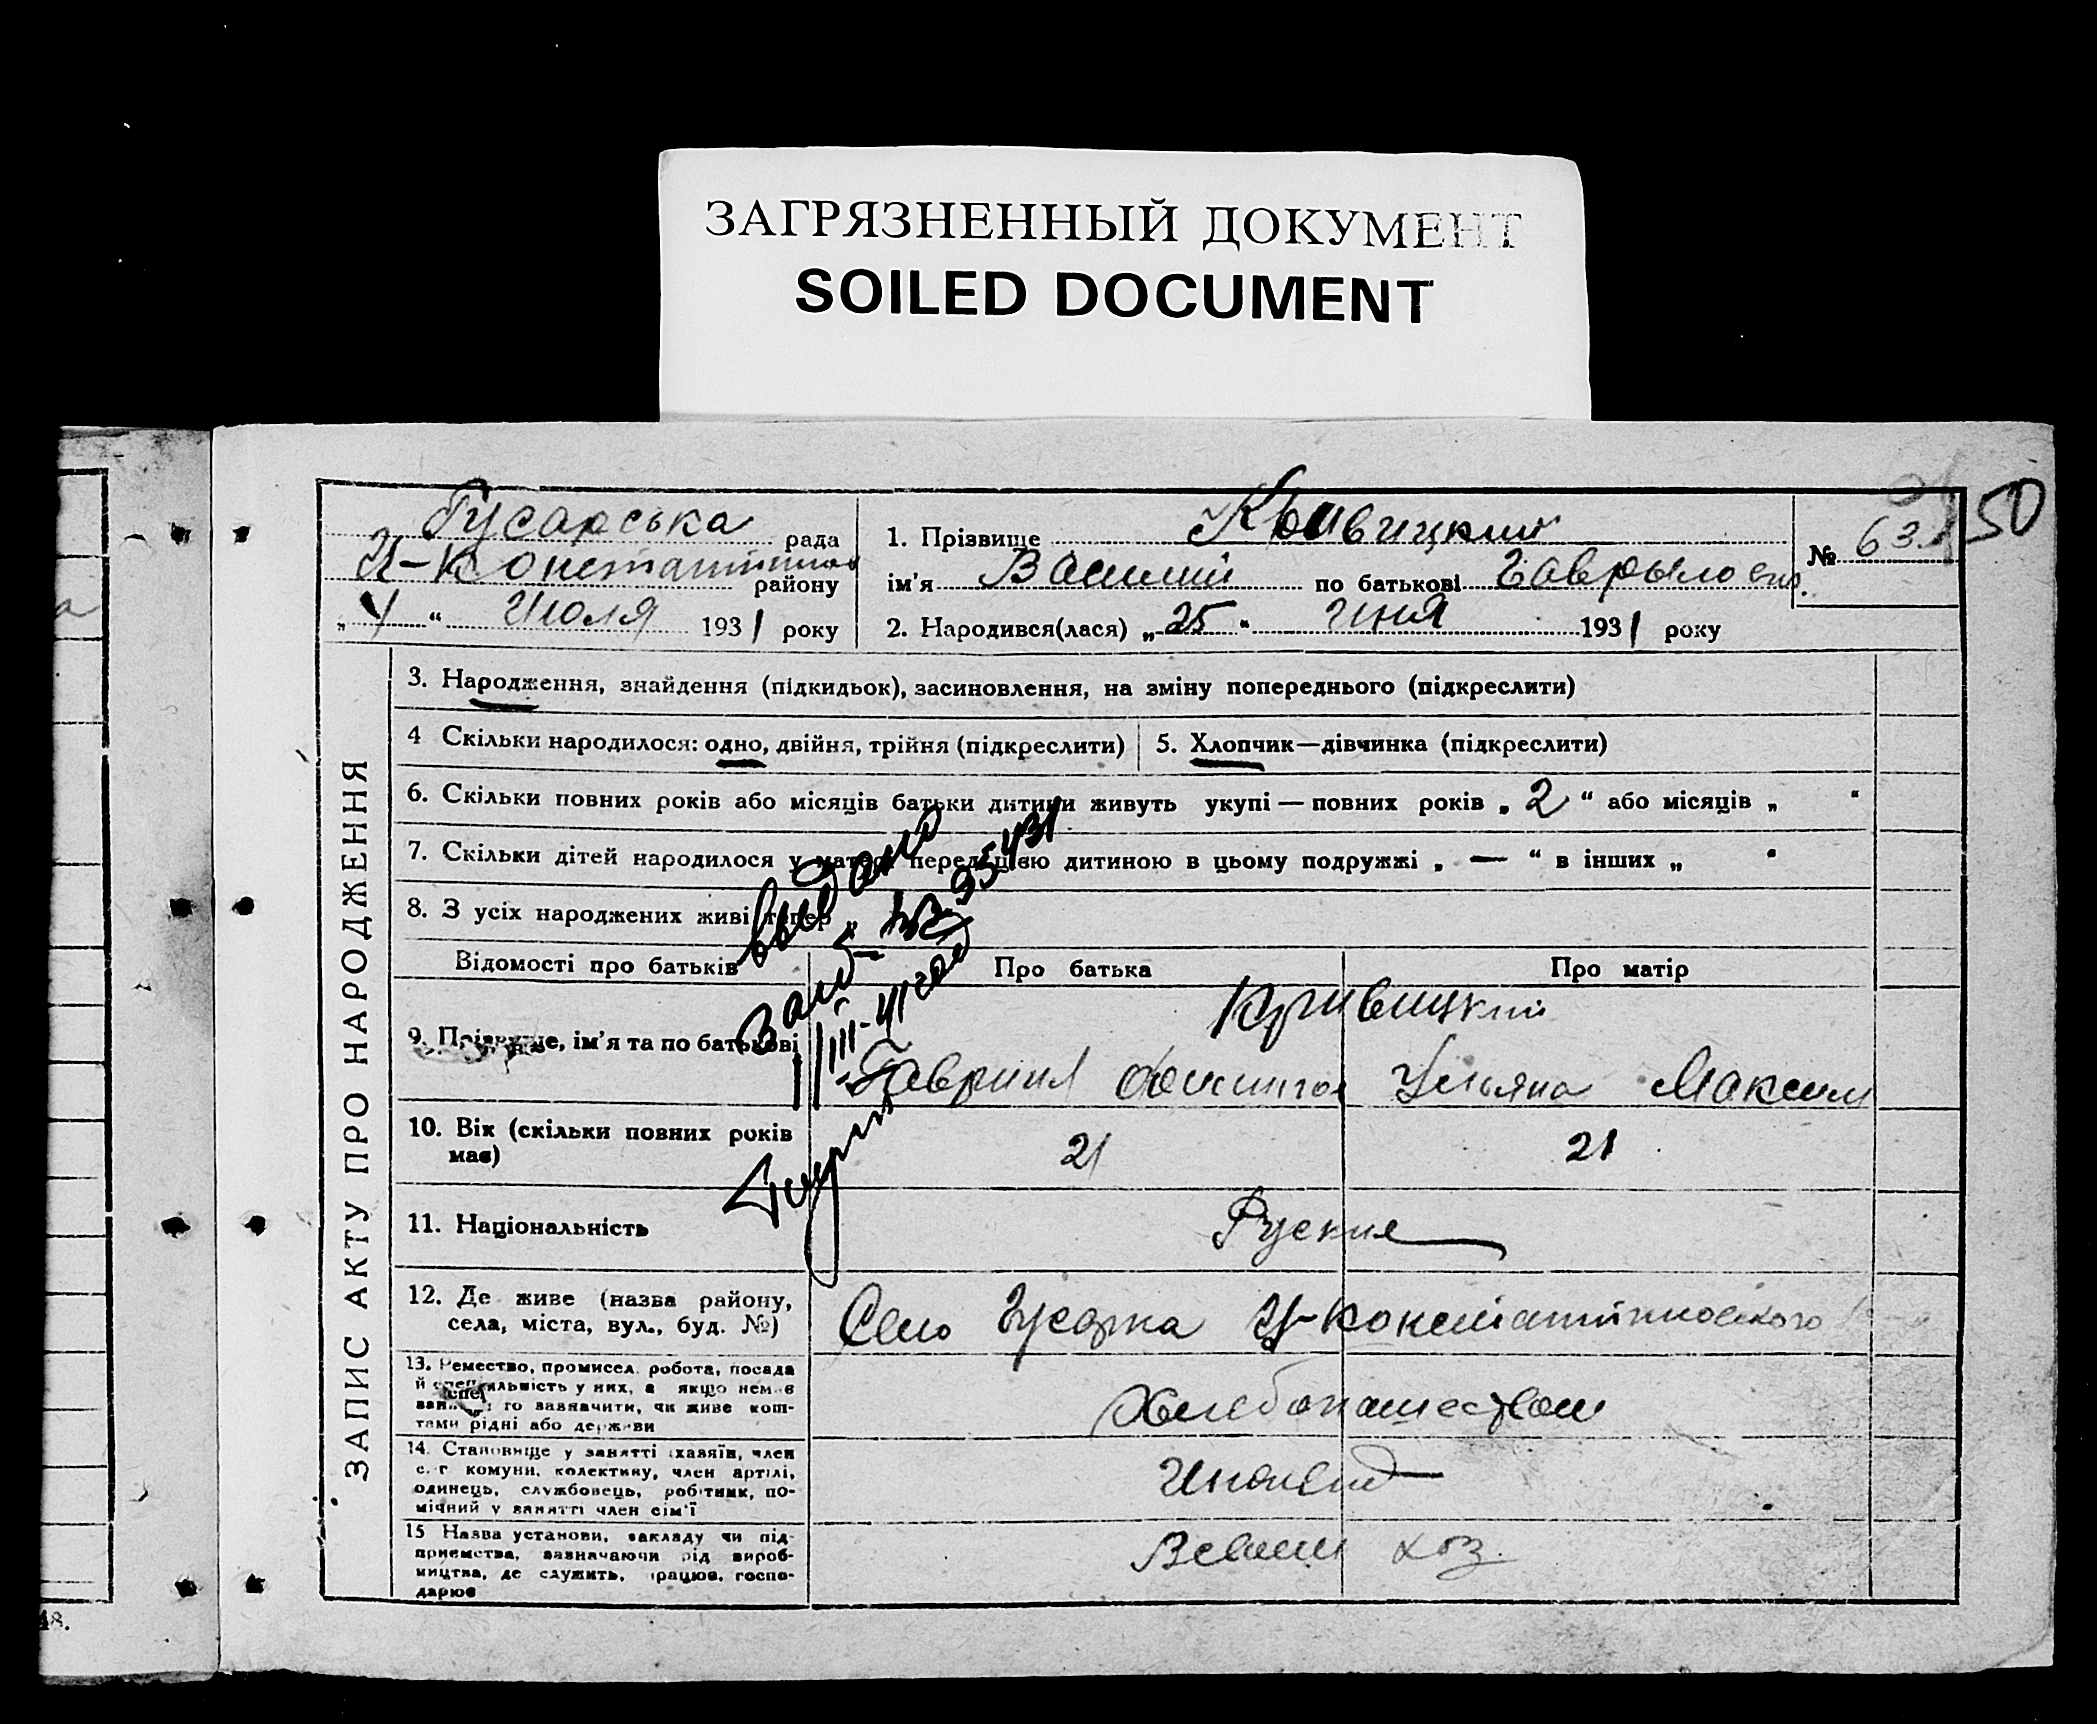 ЗАГРЯЗНЕННЫЙ ДОКУМЕНТ
SOILED DOCUMENT
Гусарська рада
району
„ 4 “ Июля 1931 року
1. Прізвище Кривицкий
ім’я Василий по батькові
2. Народився(лася) „ 25 “ 1931 року
№ 63
50
ЗАПИС АКТУ ПРО НАРОДЖЕННЯ
3. Народження, знайдення (підкидьок), засиновлення, на зміну попереднього (підкреслити)
4 Скільки народилося: одно, двійня, трійня (підкреслити)
5. Хлопчик—дівчинка (підкреслити)
6. Скільки повних років або місяців батьки дитини живуть укупі — повних років „ 2 “ або місяців „ “
7. Скільки дітей народилося у матері перед цією дитиною в цьому подружжі „ — “ в інших „ “
8. З усіх народжених живі тепер „
Відомості про батьків
Про батька
Про матір
9. Прізвище, ім’я та по батькові
Кривицкий
Гавриил
Ульяна Максим
10. Вік (скільки повних років
має)
21
21
11. Національність
Руские
12. Де живе (назва району,
села, міста, вул., буд. №)
Село Гусарка
13. Ремество, промисел, робота, посада
й спеціяльність у них, а якщо немає
го зазначити, чи живе кош-
тами рідні або держави
Хлебопашеством
14. Становище у занятті (хазяїн, член
с.-г комуни, колективу, член артілі,
одинець, службовець, робітник, по-
мічний у занятті член сім’ї
15 Назва установи, закладу чи під-
приємства, зазначаючи рід вироб-
ництва, де служить, працює, госпо-
дарює
хоз.
48.